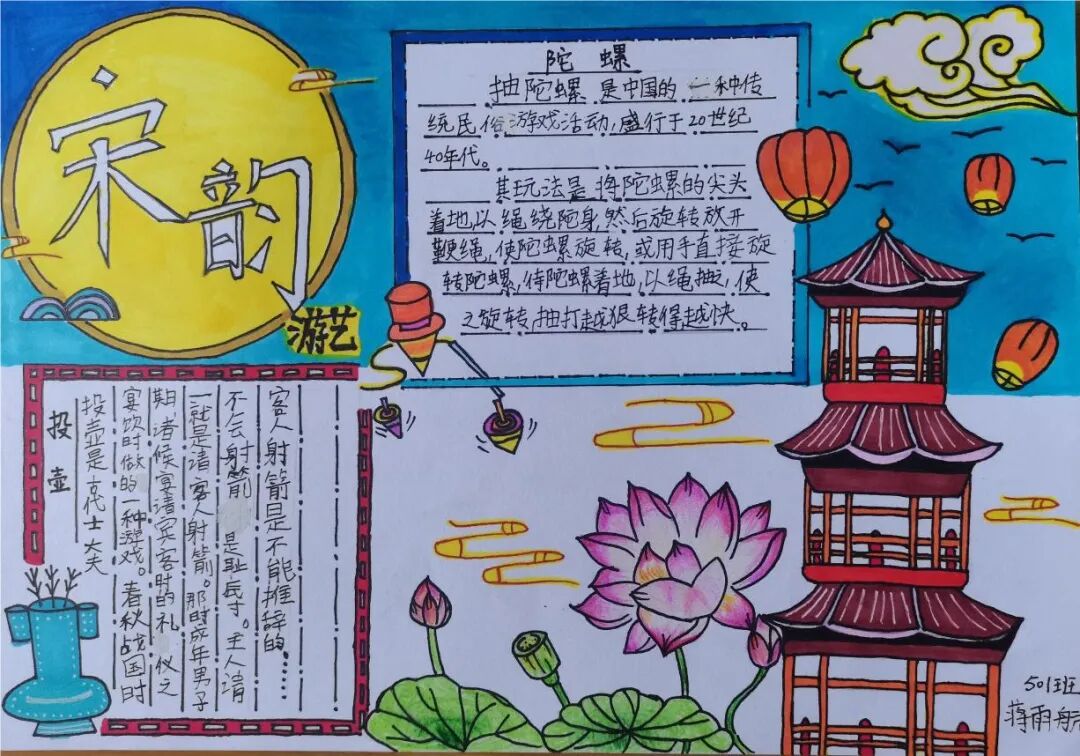 宋韵
游艺
陀螺
抽陀螺是中国的一种传
统民俗游戏活动,盛行于20世纪
40年代。
其玩法是将陀螺的尖头
着地,以绳绕陀身,然后旋转放开
鞭绳,使陀螺旋转,或用手直接旋
转陀螺,待陀螺着地,以绳抽之,使
之旋转,抽打越狠转得越快。
投壶
投壶是古代士大夫
宴饮时做的一种游戏。春秋战国时
期诸候宴请宾客时的礼仪之
一就是请客人射箭。那时成年男子
不会射箭是耻辱。主人请
客人射箭是不能推辞的……
501班
蒋雨